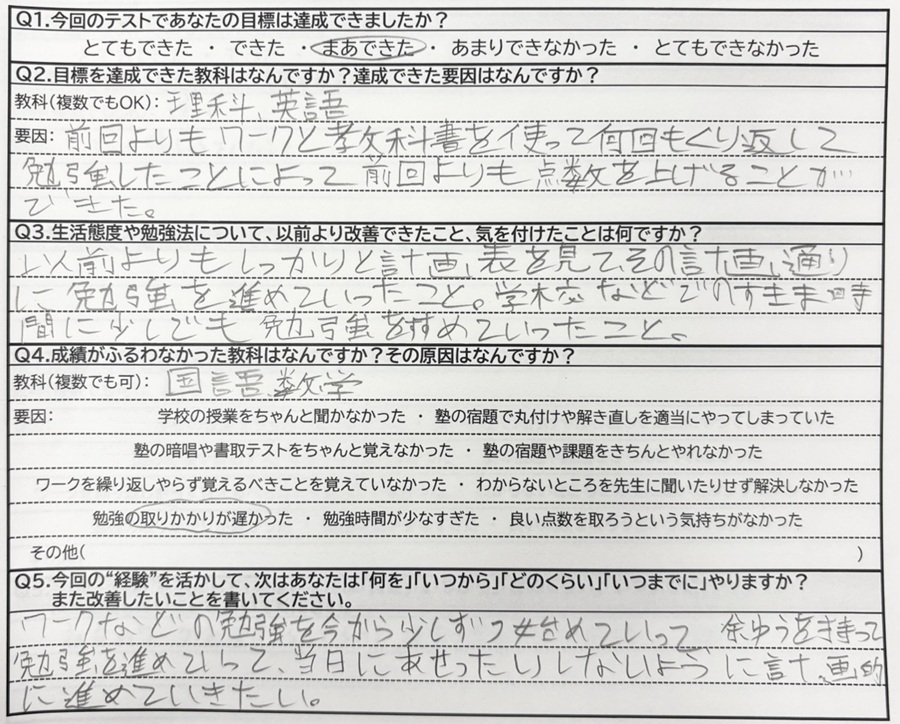 Q1.今回のテストであなたの目標は達成できましたか？
とてもできた ・ できた ・ まあできた ・ あまりできなかった ・ とてもできなかった
Q2.目標を達成できた教科はなんですか？達成できた要因はなんですか？
教科(複数でもOK)： 理科、英語
要因： 前回よりもワークと教科書を使って何回もくり返して
勉強したことによって前回よりも点数を上げることが
できた。
Q3.生活態度や勉強法について、以前より改善できたこと、気を付けたことは何ですか？
以前よりもしっかりと計画表を見て、その計画通り
に勉強を進めていったこと。学校などでのすきま時
間に少しでも勉強をすすめていったこと。
Q4.成績がふるわなかった教科はなんですか？その原因はなんですか？
教科(複数でも可)： 国語、数学
要因： 学校の授業をちゃんと聞かなかった ・ 塾の宿題で丸付けや解き直しを適当にやってしまっていた
塾の暗唱や書取テストをちゃんと覚えなかった ・ 塾の宿題や課題をきちんとやれなかった
ワークを繰り返しやらず覚えるべきことを覚えていなかった ・ わからないところを先生に聞いたりせず解決しなかった
勉強の取りかかりが遅かった ・ 勉強時間が少なすぎた ・ 良い点数を取ろうという気持ちがなかった
その他( )
Q5.今回の“経験”を活かして、次はあなたは「何を」「いつから」「どのくらい」「いつまでに」やりますか？
また改善したいことを書いてください。
ワークなどの勉強を今から少しずつ始めていって余ゆうを持って
勉強を進めていって、当日にあせったりしないように計画的
に進めていきたい。